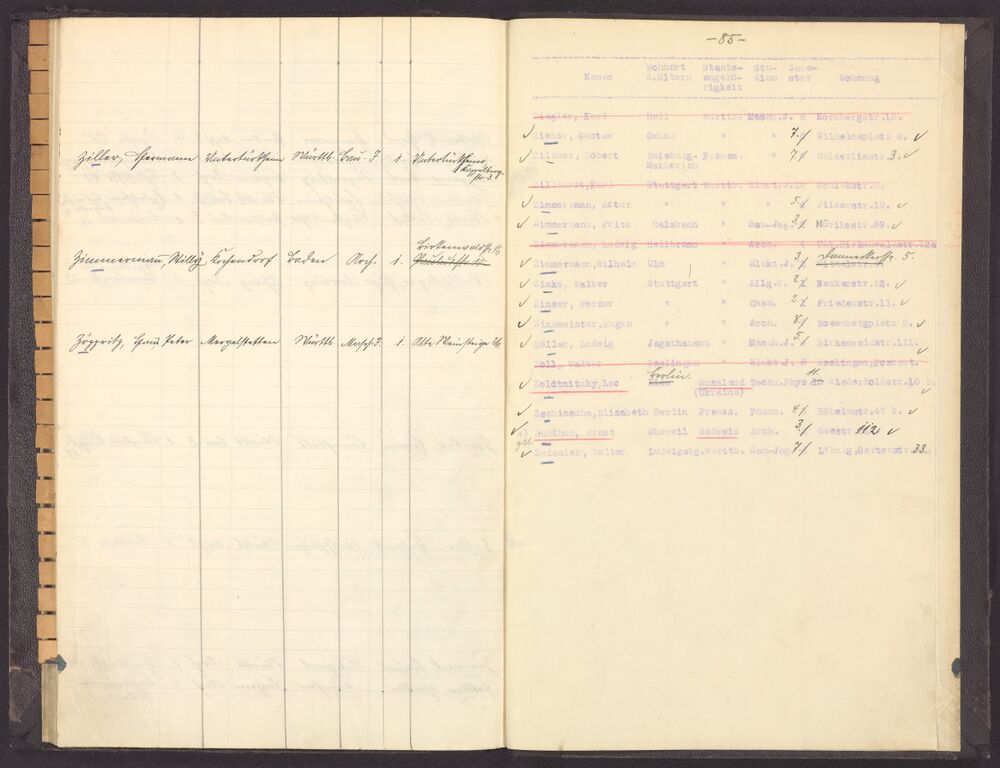 Ziller, Hermann Untertürkheim Württb. Bau-J. 1. Untertürkheim
Kappelberg-
str. 3.
Birkenwaldstr. 116
Zimmermann, Willy Kochendorf Baden Arch. 1.
Zöppritz, Hans Peter Mergelstetten Württb. Masch.J. 1. Alte Weinsteige
-85-
Wohnort Staats- Stu- Seme-
Namen d.Eltern angehö- dium ster Wohnung
rigkeit
Ziegler, Karl Hall Württb. Masch.J. 8 Kornbergstr.15.
Zieher, Gustav Gmünd " " 7. Wilhelmsplatz 8.
Zilcher, Robert Duisburg- Preuss. " 7. Hölderlinstr.3.
Meiderich
Zillhardt, Karl Stuttgart Württb. Elekt.J. Schickstr.5.
Zimmermann, Artur " " " 5. Filderstr.19.
Zimmermann, Fritz Calmbach " Bau-Ing. 3. Mörikestr.69.
Zimmermann, Ludwig Heilbronn " Arch. 4 Unt.Birkenwaldstr.
Zimmermann, Wilhelm Ulm " Elekt.J. 3. Danneckerstr. 5.
Zinke, Walter Stuttgart " Allg.B. 2. Neckarstr.52.
Zinser, Werner " " Chem. 2. Friedenstr.11.
Zinsmeister, Eugen " " Arch. 8. Rosenbergplatz 3.
Zöller, Ludwig Jagsthausen " Masch.J. 5. Birkenwaldstr.111.
Zoll, Walter Esslingen " Elekt.J. 8 Esslingen, Postamt.
Zoldtnitzky, Leo Berlin. Russland Techn.Phys. 11. Wiederholdstr.10 b.
(Ukraine)
Zschiesche, Elisabeth Berlin Preuss. Pharm. 4. Böheimstr.47 b.
Zumthor, Ernst Oberwil Schweiz Arch. 3. Seestr. 112
Zeissler, Walter Ludwigsbg. Württb. Bau-Ing. 7. L'burg, Gartenstr. 33.